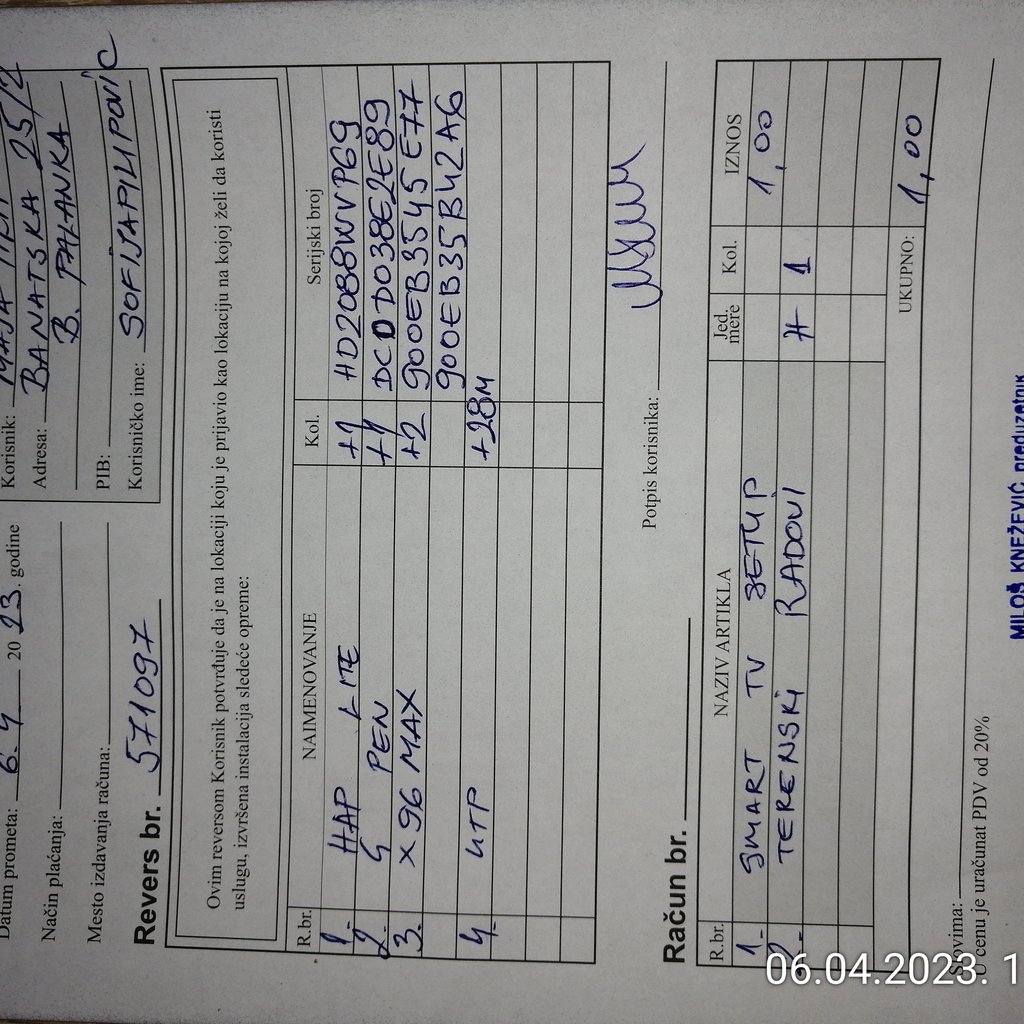 Datum prometa: 6. 4 2023. godine
Način plaćanja:
Mesto izdavanja računa:
Korisnik: MAJA
Adresa: BANATSKA 25/2
B. PALANKA
PIB:
Korisničko ime: SOFIJAPILIPOVIC
Revers br. 571097
Ovim reversom Korisnik potvrđuje da je na lokaciji koju je prijavio kao lokaciju na kojoj želi da koristi
uslugu, izvršena instalacija sledeće opreme:
R.br. NAIMENOVANJE Kol. Serijski broj
1. HAP LITE +1 HD2088WVP69
2. G PEN +1 DCDD038E2E89
3. X96 MAX +2 900EB3545E77
900EB35B42A6
4. UTP +28M
Potpis korisnika:
Račun br.
R.br. NAZIV ARTIKLA Jed. mere Kol. IZNOS
1. SMART TV SETUP 1,00
2. TERENSKI RADOVI H 1
UKUPNO: 1,00
Slovima:
U cenu je uračunat PDV od 20%
MILOŠ KNEŽEVIĆ preduzetnik
06.04.2023. 1